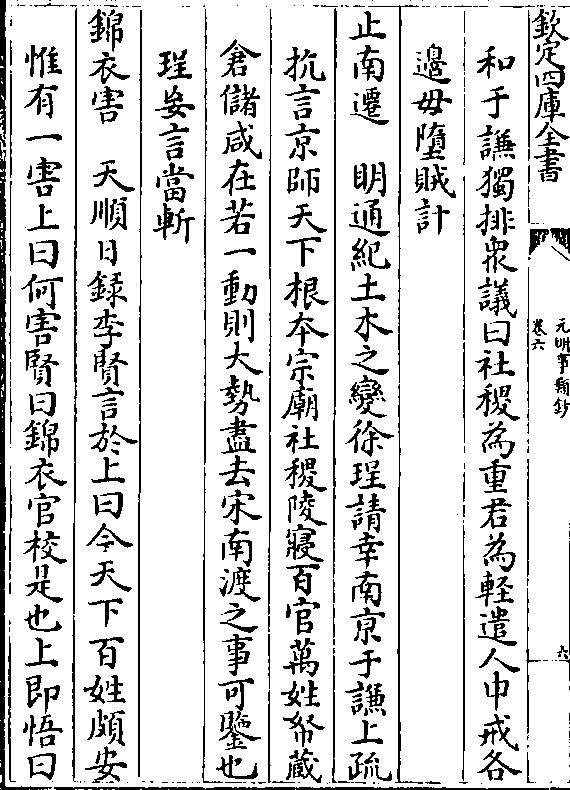 欽定四庫全書
元明事類鈔
卷六
六
和于謙獨排衆議曰社稷為重君為輕遣人申戒各
邊毋墮賊計
止南遷　明通紀土木之變徐珵請幸南京于謙上疏
抗言京師天下根本宗廟社稷陵寢百官萬姓帑藏
倉儲咸在若一動則大勢盡去宋南渡之事可鑒也
珵妄言當斬
錦衣害　天順日録李賢言於上曰今天下百姓頗安
惟有一害上曰何害賢曰錦衣官校是也上即悟曰